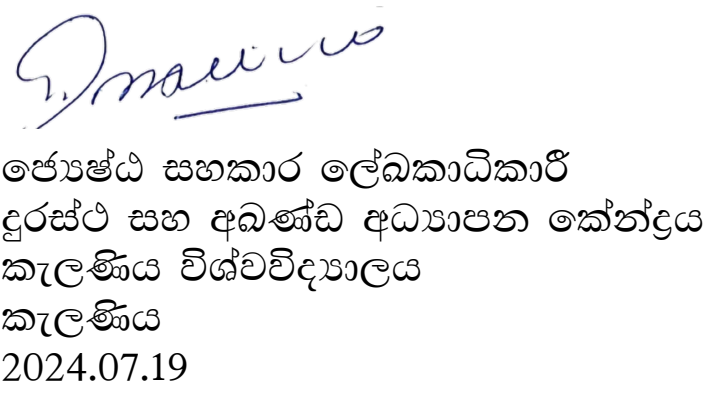 ජ්‍යෙෂ්ඨ සහකාර ලේඛකාධිකාරී
දුරස්ථ සහ අඛණ්ඩ අධ්‍යාපන කේන්ද්‍රය
කැලණිය විශ්වවිද්‍යාලය
කැලණිය
2024.07.19